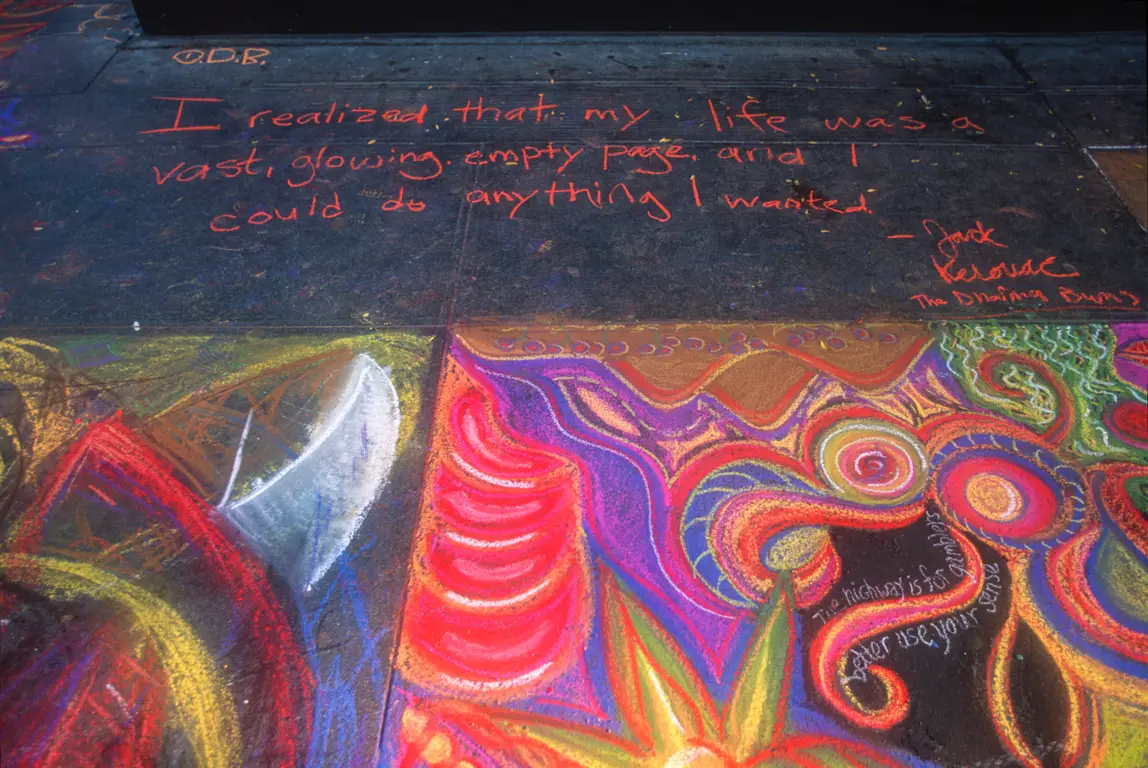 O.D.B.
I realized that my life was a
vast, glowing, empty page, and I
could do anything I wanted.
- Jack
Kerouac
The Dharma Bums
The highway is for gamblers
better use your sense